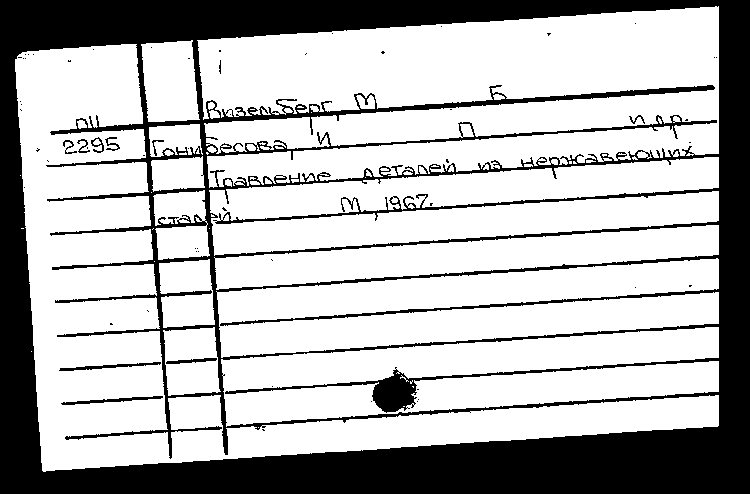 Визельберг, М Б
ПЦ
2295 Ганибесова, И П и др.
Травление деталей из нержавеющих
сталей. М., 1967.